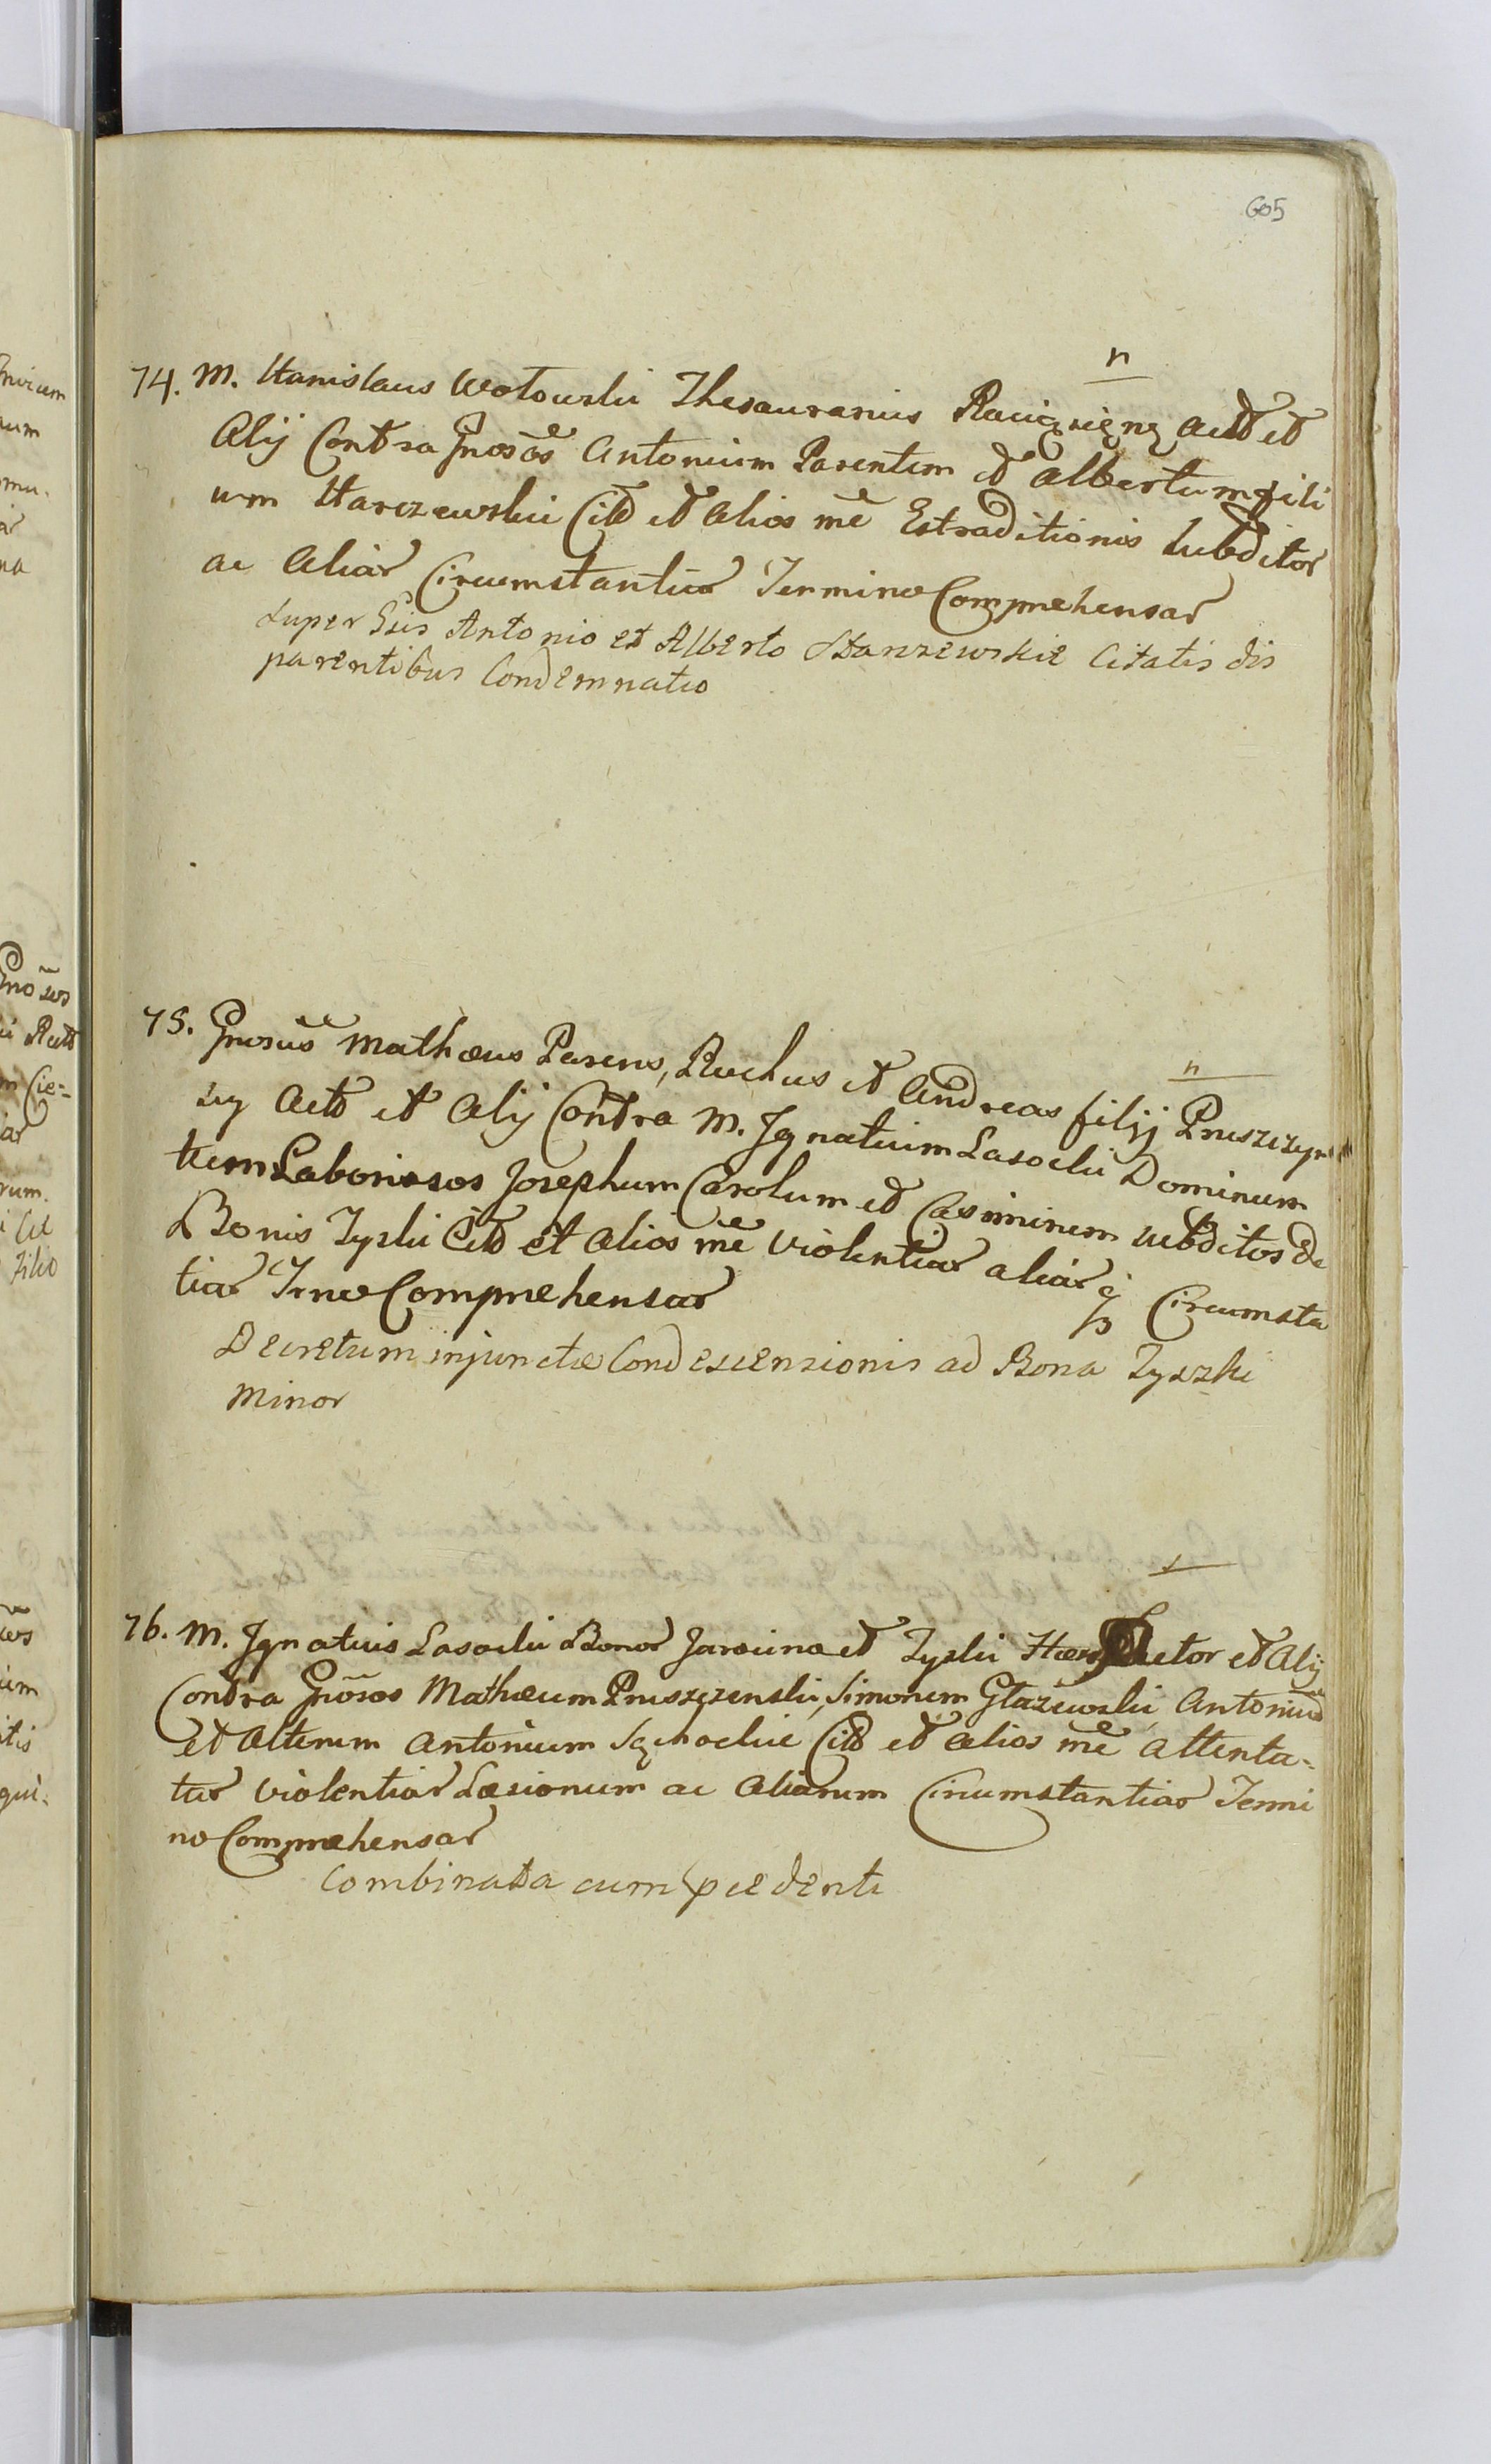 605
n
74. M. Stanislaus Wotowski Thesaurarius Raciąziens Act et
Alij Contra Gnosos Antonium Parentem et Albertum fili
um Starczewskie Cit et Alios me Extraditionis Subditor
ac Aliar Circumstantiar Termino Comprehensar
Super Gsis Antonio et Alberto Starzewskie Citatis dis
parentibus Condemnatio
n
75. Gnosus Mathæus Parens, Rochus et Andreas filij Pruszczyn
scy Act et Alij Contra M. Ignatium Lasocki Dominum
tum Laboriosos Josephum Carolum et Casimirum subditos de
Bonis Zyski Cit et Alios me violentiar aliar q Circumsta
tiar Trno Comprehensar
Decretum injunctæ Condescensionis ad Bona Zyszki
Minor
76. M. Ignatius Lasocki Bonor Jarocina et Zyski Hæres Actor et Alij
Contra Gnosos Mathæum Pruszczenski, Simonem Głazewski, Antonium
et Alterum Antonium Cit et Alios me Attenta-
tar violentiar Læsionum ac Aliarum Circumstantiar Termi
no Comprehensar
Combinata cum pcedenti